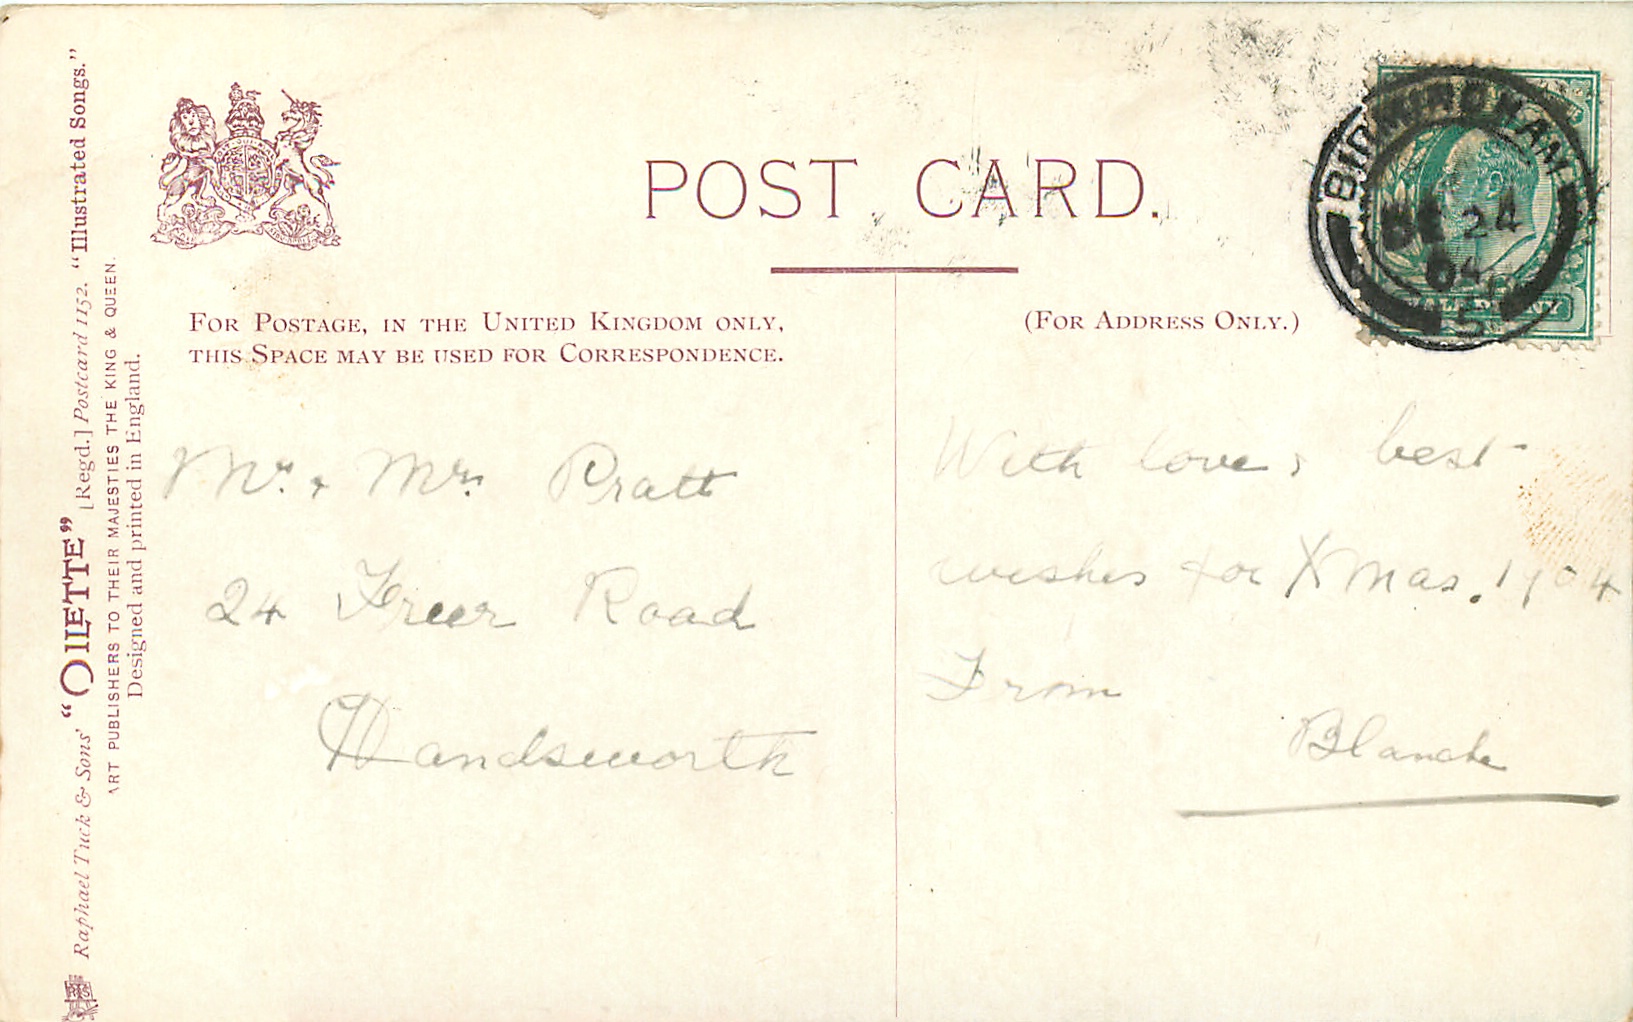 POST CARD.
FOR POSTAGE, IN THE UNITED KINGDOM ONLY,
THIS SPACE MAY BE USED FOR CORRESPONDENCE.
(FOR ADDRESS ONLY.)
Mr. & Mrs Pratt
24 Freer Road
Handsworth
With love, best
wishes for Xmas. 1904
From
Blanche
BIRMINGHAM
DE 24
04
HALFPENNY
Raphael Tuck & Sons' "OILETTE" [Regd.] Postcard 1152. "Illustrated Songs."
ART PUBLISHERS TO THEIR MAJESTIES THE KING & QUEEN.
Designed and printed in England.